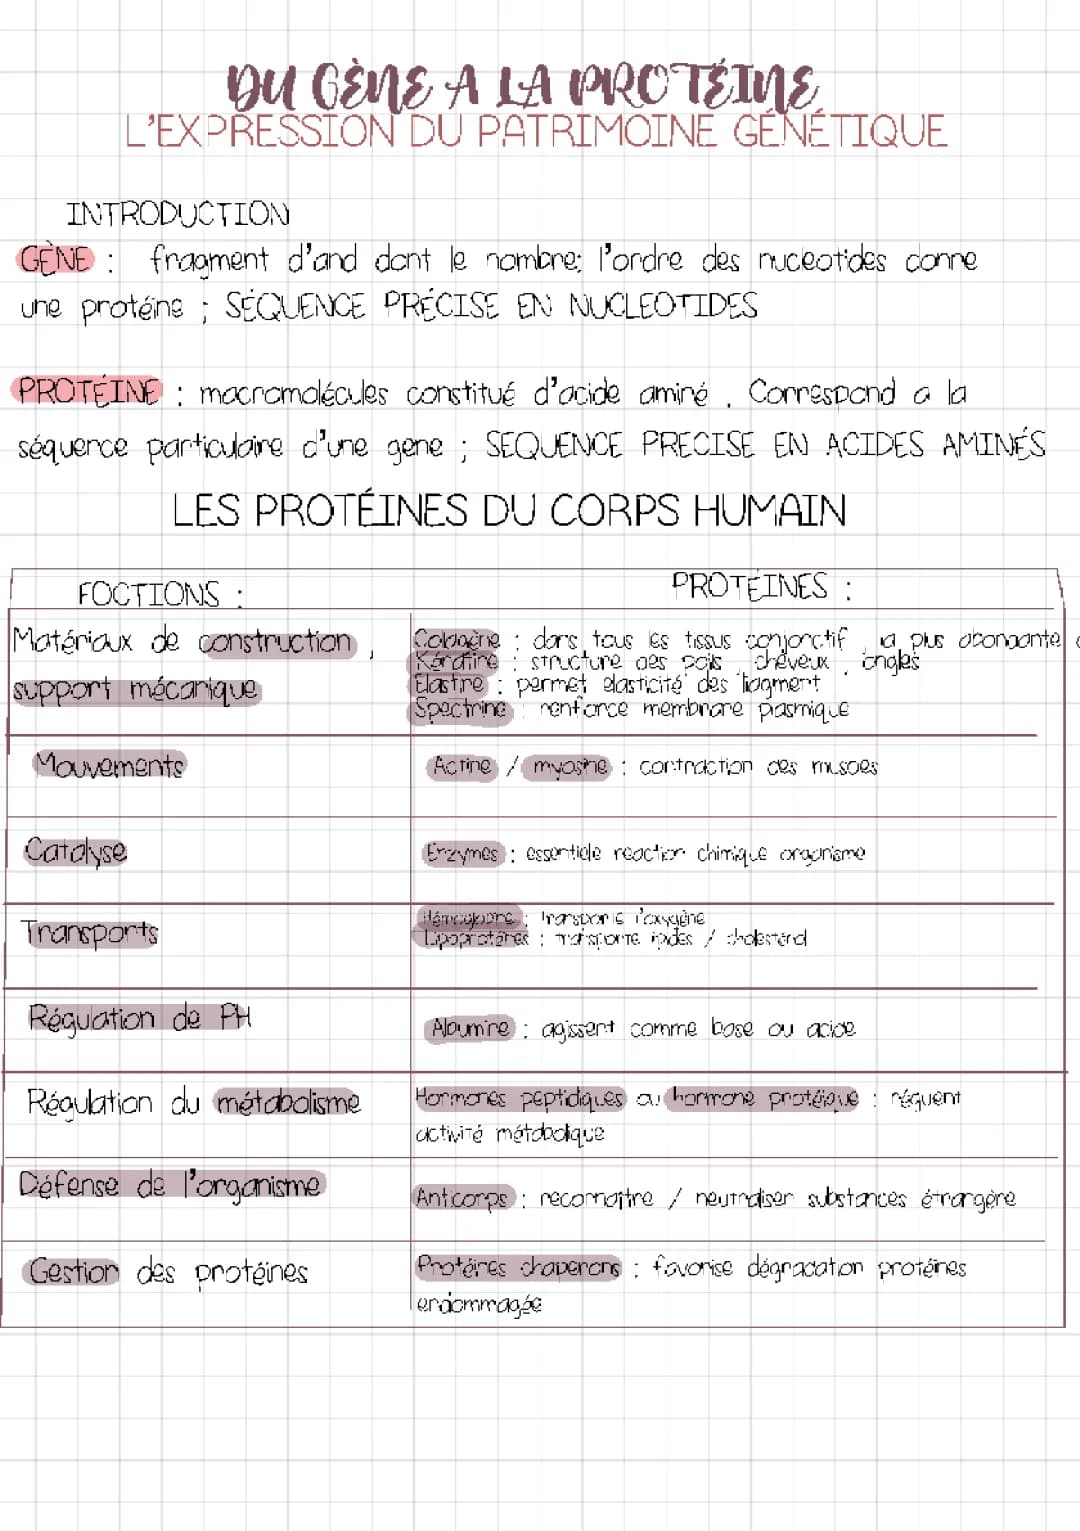 DU GÈNE A LA PROTÉINE
L'EXPRESSION DU PATRIMOINE GÉNÉTIQUE
INTRODUCTION
GÈNE : fragment d'and dont le nombre; l'ordre des nucleotides donne
une protéine ; SÉQUENCE PRÉCISE EN NUCLEOTIDES
PROTÉINE : macromolécules constitué d'acide aminé . Correspond a la
séquence particulaire d'une gene ; SEQUENCE PRECISE EN ACIDES AMINÉS
LES PROTÉINES DU CORPS HUMAIN
FOCTIONS : PROTÉINES :
Matériaux de construction ,
support mécanique
Colagène : dans tous les tissus conjonctif , la plus abondante
Kératine : structure des poils , cheveux , ongles
Elastine : permet elasticité des liagment
Spectrine : renforce membrane plasmique
Mouvements
Actine / myosine : contraction des musces
Catalyse
Enzymes : essentiele reaction chimique organisme
Transports
Hémoglobine : transporte l'oxygène
Lipoprotéines : transporte lipides / cholestérol
Régulation de PH
Albumine : agissent comme base ou acide
Régulation du métabolisme
Hormones peptidiques ou hormone protéique : réguent
activité métabolique
Défense de l'organisme
Anticorps : reconnaitre / neutraliser substances étrangère
Gestion des protéines
Protéines chaperons : favorise dégradation protéines
endommagée